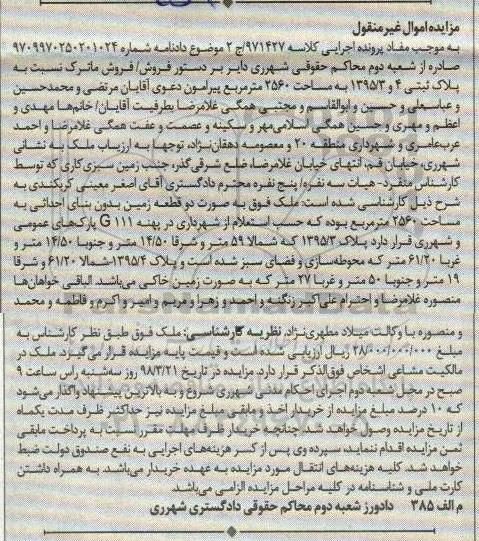 مزایده اموال غیر منقول
به موجب مفاد پرونده اجرایی کلاسه ۹۷۱۴۲۷/ج ۲ موضوع دادنامه شماره ۹۷۰۹۹۷۰۲۵۰۲۰۱۰۲۴
صادره از شعبه دوم محاکم حقوقی شهرری دایر بر دستور فروش/ فروش ماترک نسبت به
پلاک ثبتی ۴ و ۱۳۹۵/۳ به مساحت ۲۵۶۰ مترمربع پیرامون دعوی آقایان مرتضی و محمدحسین
و عباسعلی و حسین و ابوالقاسم و مجتبی همگی غلامرضا بطرفیت آقایان/ خانم‌ها مهدی و
اعظم و مهری و حسین همگی اسلامی‌مهر و سکینه و عصمت و عفت همگی غلامرضا و احمد
عرب‌عامری و شهرداری منطقه ۲۰ و معصومه دهقان‌نژاد، توجها به ارزیاب ملک به نشانی
شهرری، خیابان قم، انتهای خیابان غلامرضا، ضلع شرقی گذر، جنب زمین سبزی‌کاری که توسط
کارشناس منفرد- هیات سه نفره/ پنج نفره محترم دادگستری آقای اصغر معینی کربکندی به
شرح ذیل کارشناسی شده است: ملک فوق به صورت دو قطعه زمین بدون بنای احداثی به
مساحت ۲۵۶۰ مترمربع بوده که حسب استعلام از شهرداری در پهنه G ۱۱۱ پارک‌های عمومی
و شهرری قرار دارد پلاک ۱۳۹۵/۳ که شمالا ۵۹ متر و شرقا ۱۴/۵۰ متر و جنوبا ۱۴/۵۰ متر و
غربا ۶۱/۲۰ متر که محوطه‌سازی و فضای سبز شده است و پلاک ۱۳۹۵/۴ شمالا ۶۱/۲۰ و شرقا
۱۹ متر و جنوبا ۵۰ متر و غربا ۲۷ متر که به صورت زمین خاکی می‌باشد. الباقی خواهان‌ها
منصوره غلامرضا و احترام علی‌اکبر زنگنه و احمد و زهرا و مریم و امیر و اکرم و فاطمه و محمد
و منصوره با وکالت میلاد مطهری‌نژاد. نظریه کارشناسی: ملک فوق طبق نظر کارشناس به
مبلغ ۲۸/۰۰۰/۰۰۰/۰۰۰ ریال ارزیابی شده است و قیمت پایه مزایده قرار می‌گیرد. ملک در
مالکیت مشاعی اشخاص فوق‌الذکر قرار دارد. مزایده در تاریخ ۹۸/۳/۲۱ روز سه‌شنبه راس ساعت ۹
صبح در محل شعبه دوم اجرای احکام مدنی شهرری شروع و به بالاترین پیشنهاد واگذار می‌شود
که ۱۰ درصد مبلغ مزایده از خریدار اخذ و مابقی مبلغ مزایده نیز حداکثر ظرف مدت یکماه
از تاریخ مزایده وصول خواهد شد. چنانچه خریدار ظرف مهلت مقرر نسبت به پرداخت مابقی
ثمن مزایده اقدام ننماید، سپرده وی پس از کسر هزینه‌های اجرایی به نفع صندوق دولت ضبط
خواهد شد. کلیه هزینه‌های انتقال مورد مزایده به عهده خریدار می‌باشد. به همراه داشتن
کارت ملی و شناسنامه در کلیه مراحل مزایده الزامی می‌باشد.
م الف ۳۸۵ دادورز شعبه دوم محاکم حقوقی دادگستری شهرری